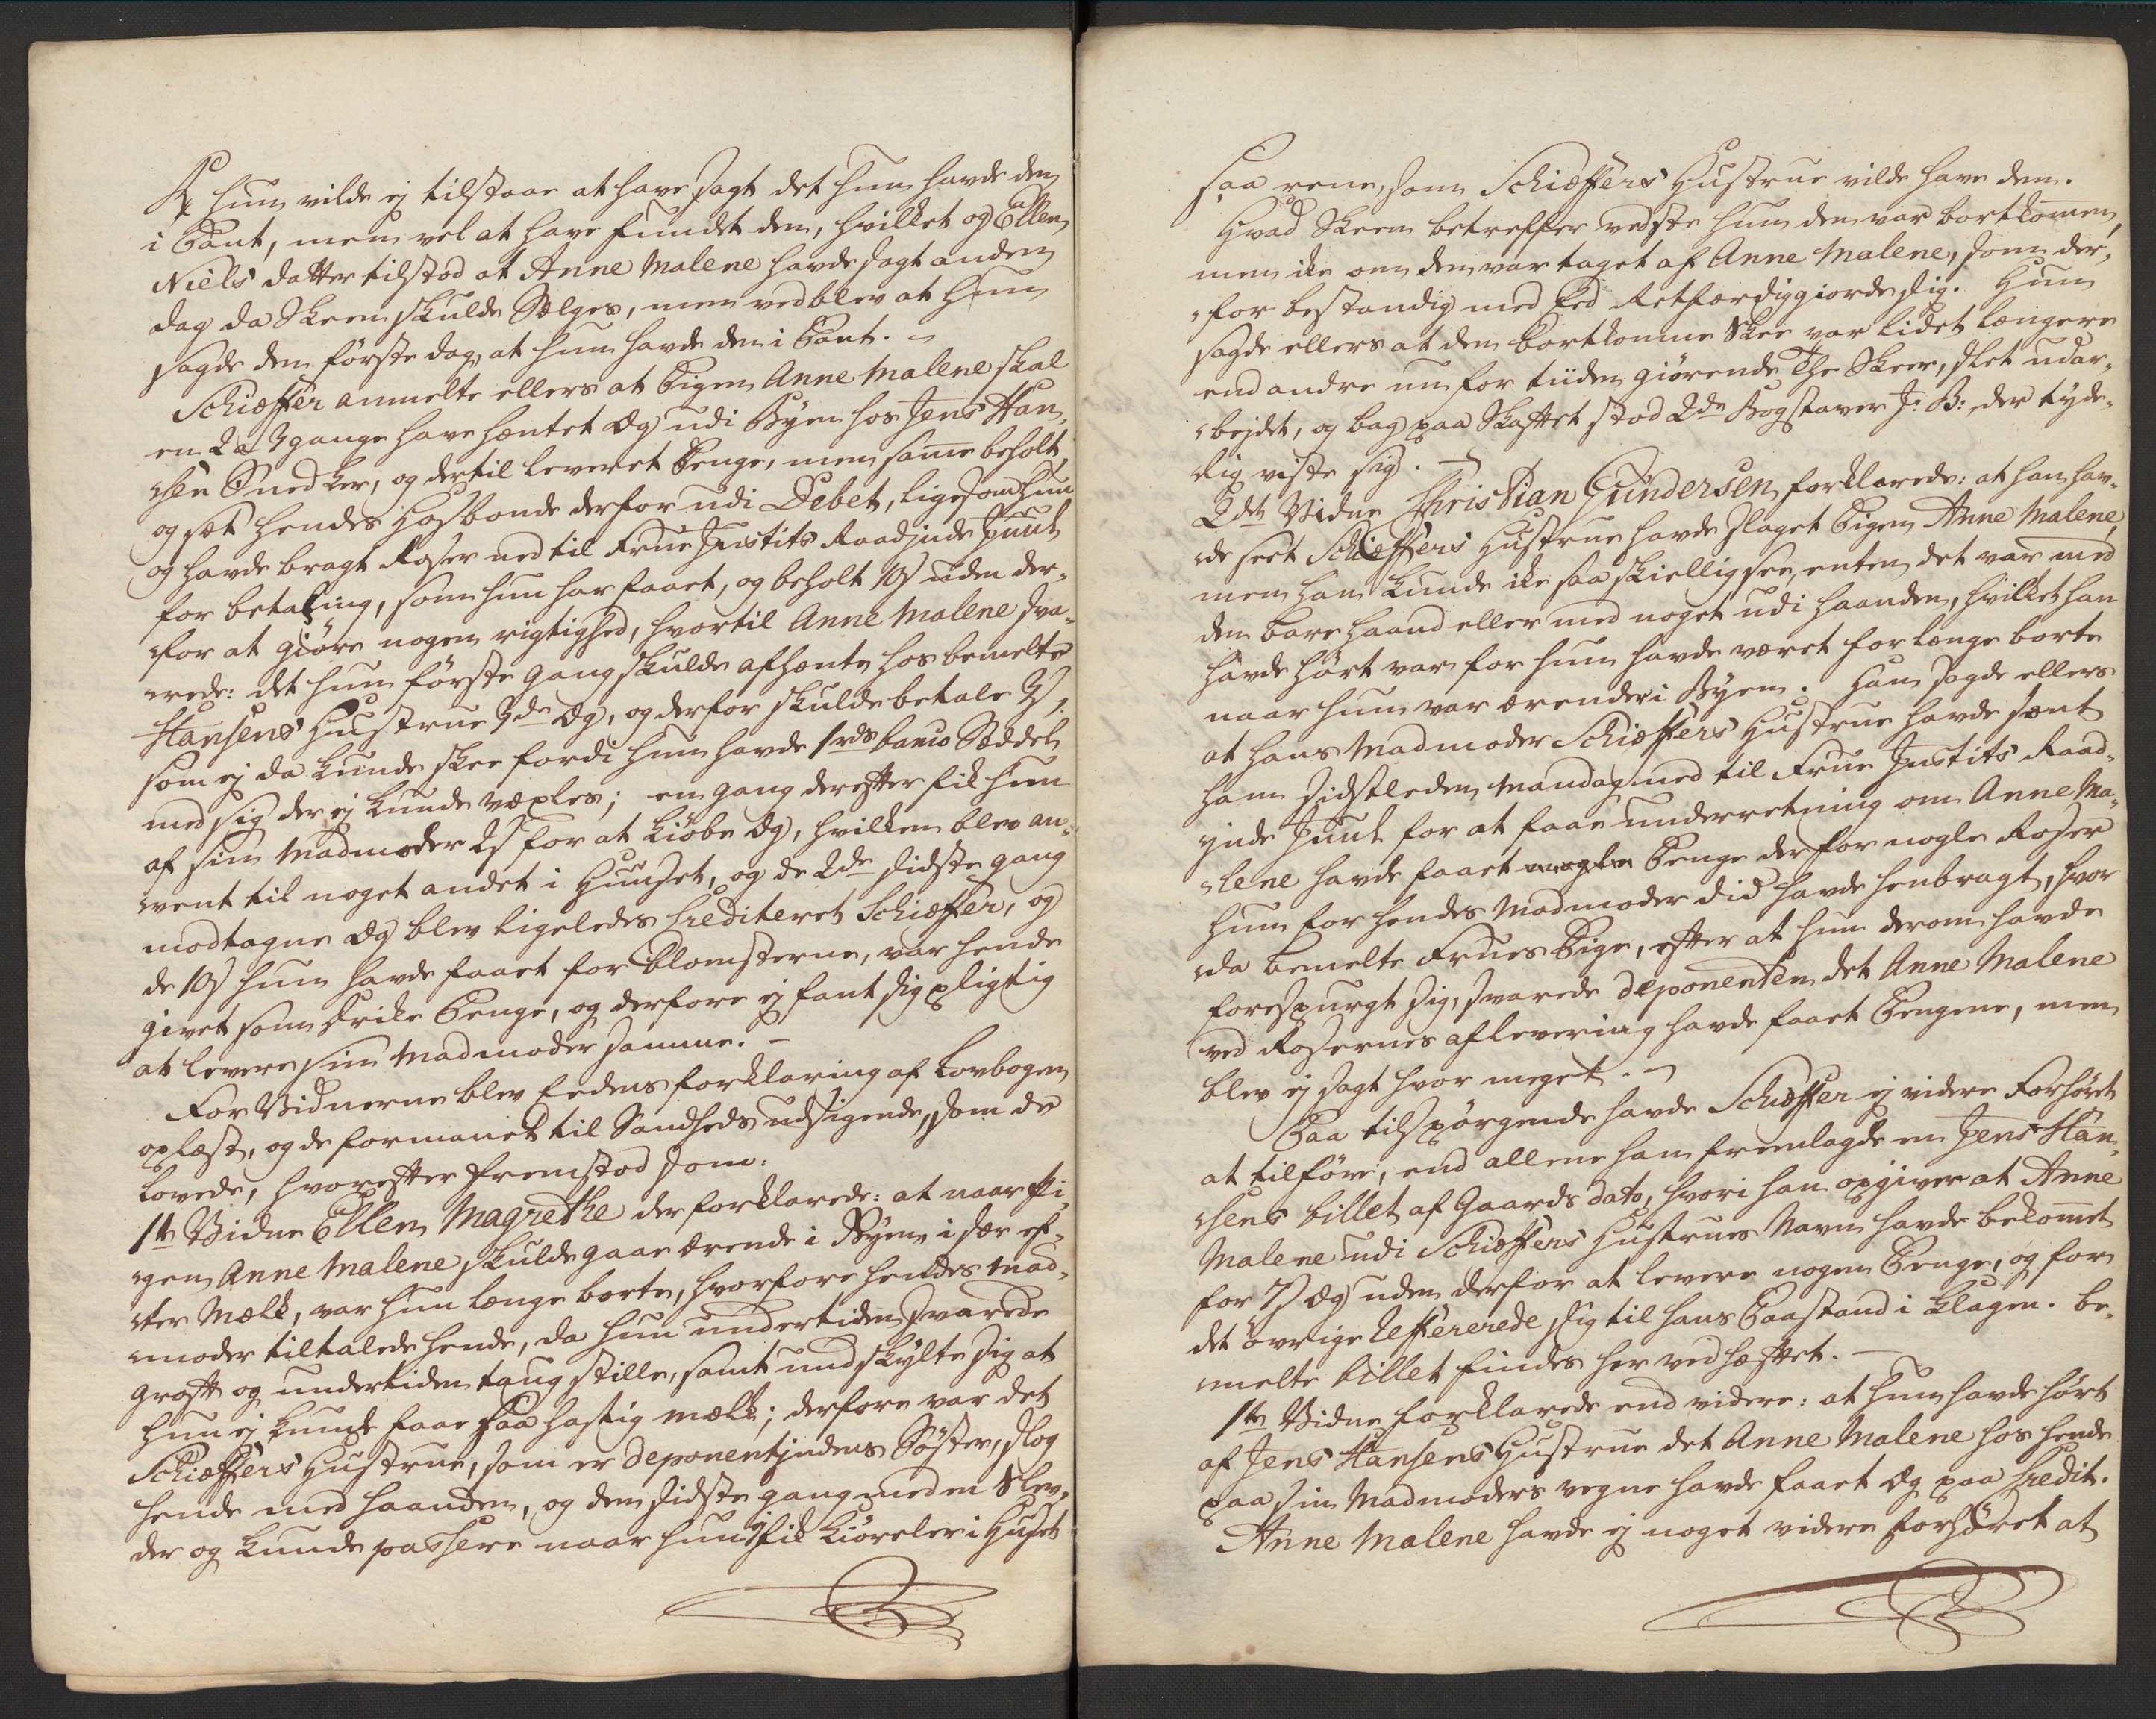 hun vilde ej tilstaae at have sagt det hun havde den
i Pant, men vel at have fundet den, hvilket og Ellen
Niels datter tilstod at Anne Malene havde sagt anden
dag da Skeen skulde Sælges, men vedblev at hun
sagde den første dag, at hun havde den i Pant. –
Schiæffer anmelte ellers at Pigen Anne Malene skal
en 2 a 3 gange have hentet Æg udi Byen hos Jens Han-
-sen Snedker, og dertil leveret Penge, men samme beholt,
og sat hendes Hosbonde derfor udi Debet, ligesom hun
og havde bragt Roser ned til Frue Justits Raadjnde Juul
for betaling, som hun har faaet, og beholt 10 s uden der-
-for at giøre nogen rigtighed, hvortil Anne Malene sva-
-rede: det hun første gang skulde afhente hos bemelte
Hansens Hustrue 3de Æg, og derfor skulde betale 3 s,
som ej da kunde skee fordi hun havde 1 rds banco Seddel
med sig der ej kunde vexles; en gang derefter fik hun
af sin Madmoder 2 s for at kiøbe Æg, hvilken blev an-
-vent til noget andet i Huuset, og de 2de sidste gang
modtagne Æg blev ligeledes Crediteret Schiæffer, og
de 10 s hun havde faaet for Blomsterne, var hende
givet som Drikke Penge, og derfore ej fant sig pligtig
at levere sin Madmoder samme. –
For Vidnerne blev Eedens forklaring af Lovbogen
oplæst, og de formanet til Sandheds udsigende, som de
lovede, hvorefter fremstod som:
1te Vidne Ellen Magrethe der forklarede: at naar Pi-
-gen Anne Malene skulde gaae ærende i Byen i sær ef-
-ter Mælk, var hun længe borte, hvorfore hendes Mad-
-moder tiltalede hende, da hun undertiden svarede
groft og undertiden taug stille, samt undskylte sig at
hun ej kunde faae saa hastig Mælk; derfore var det
Schiæffers Hustrue, som er Deponentjndens Søster, slog
hende med haanden, og den sidste gang med en Slev,
der og kunde passere naar hun ej fik Kiøreler i Huset
saa reene, som Schiæffers Hustrue vilde have dem.
Hvad Skeen betreffer vedste hun den var bortkommen,
men ike om den var taget af Anne Malene, som der-
-for bestandig med Eed Retfærdiggiorde sig. Hun
sagde ellers at den bortkomne Skee var lidet længere
end andre nu for tiiden giørende The Skeer, slet udar-
-bejdet, og bag paa Skaftet stod 2de Bogstaver J: B: der tyde-
-lig viste sig. –
2det Vidne Christian Gundersen forklarede: at han hav-
-de seet Schiæffers Hustrue havde slaget Pigen Anne Malene,
men han kunde ike saa skiellig see, enten det var med
den bare haand eller med noget udi haanden, hvilket han
havde hørt var for hun havde været for længe borte
naar hun var ærender i Byen. Han sagde ellers
at hans Madmoder Schiæffers Hustrue havde sænt
ham sidstleden Mandag ned til Frue Justits Raad-
-jnde Juul for at faae underretning om Anne Ma-
-lene havde faaet Penge derfor nogle Roser
hun for hendes Madmoder did havde henbragt, hvor
-da bemelte Frues Pige, efter at hun derom havde
forespurgt sig, svarede Deponenten det Anne Malene
ved Rosernes aflevering havde faaet Pengene, men
blev ej sagt hvor meget. –
Paa tilspørgende havde Schiæffer ej videre Forhøret
at tilføre, end allene han fremlagde en Jens Han-
-sens billet af Gaards dato, hvori han opgiver at Anne
Malene udi Schiæffers Hustrues Navn havde bekommet
for 7 s Æg uden derfor at levere nogen Penge, og for
det øvrige Refererede sig til hans Paastand i Klagen. be-
-melte billet findes her ved hæftet. –
1te Vidne forklarede end videre: at hun havde hørt
af Jens Hansens Hustrue det Anne Malene hos hende
paa sin Madmoders vegne havde faaet Æg paa Credit.
Anne Malene havde ej noget videre forhøret at